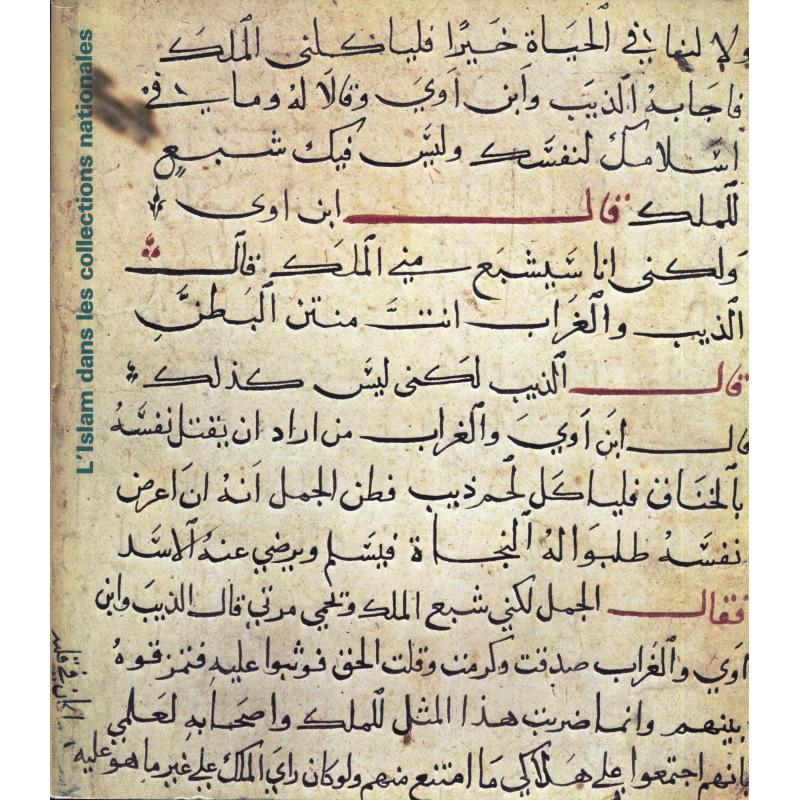 L'Islam dans les collections nationales
ولا لنفا في الحياة خيرا فلياكلنى الملك
فاجابه الذيب وابن اوي وقالا له وما في
اسلامك لنفسك وليس فيك شبع
للملك قال ابن اوى
ولكنى انا سيشبع مني الملك قال
الذيب والغراب انت منتن البطن
قال الذيب لكنى ليس كذلك
قال ابن اوي والغراب من اراد ان يقتل نفسه
بالخناق فلياكل لحم ذيب فظن الجمل انه ان اعرض
نفسه طلبوا له النجاة فيسلم ويرضي عنه الاسد
فقال الجمل لكني شبع الملك ولحمي مرتي قال الذيب وابن
اوي والغراب صدقت وكرمت وقلت الحق فوثبوا عليه فتمزقوه
بينهم وانما ضربت هذا المثل للملك واصحابه لعلمي
بانهم اجتمعوا علي هلاكي ما امتنع منهم ولو كان راي الملك علي غير ما هو عليه